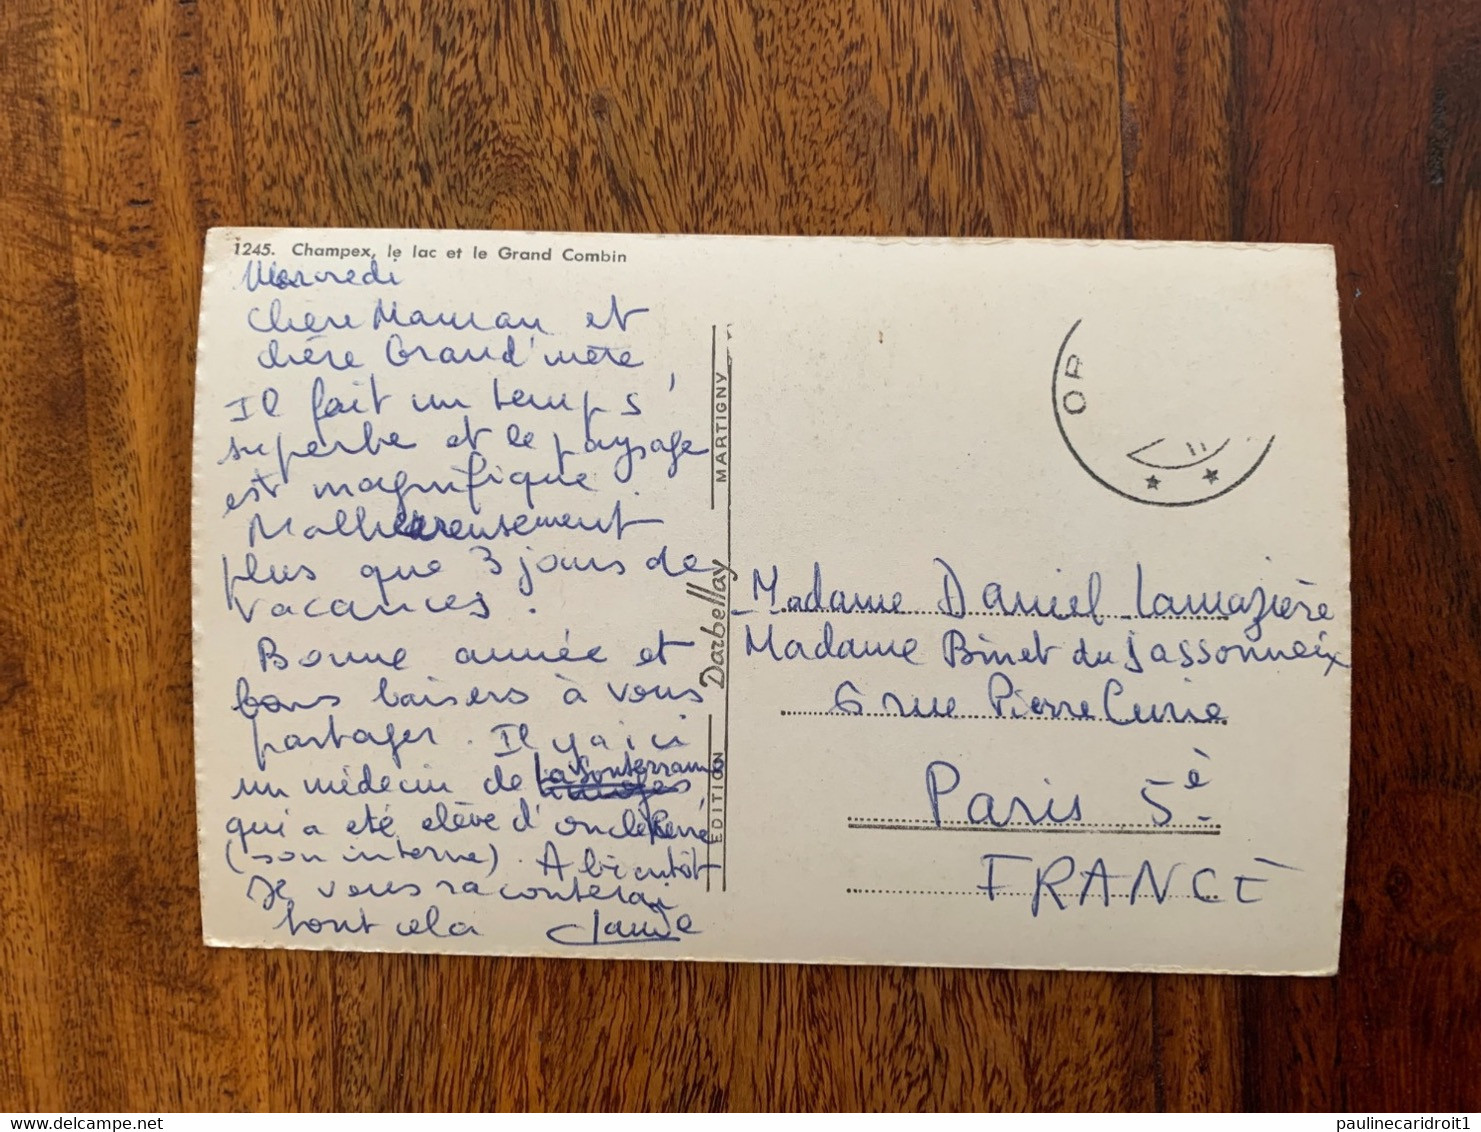 1245. Champex, le lac et le Grand Combin
Mercredi
Chère Maman et
chère Grand'mère
Il fait un temps
superbe et le paysage
est magnifique.
Malheureusement
plus que 3 jours de
vacances.
Bonne année et
bons baisers à vous
partager. Il y a ici
un médecin de La Souterraine
qui a été élève d'oncle René
(son interne). A bientôt
Je vous raconterai
tout cela Claude
EDITION Darbellay MARTIGNY
OR
Madame Daniel Lamazière
Madame Binet du Jassonneix
6 rue Pierre Curie
Paris 5è
FRANCE
paulinecaridroit1